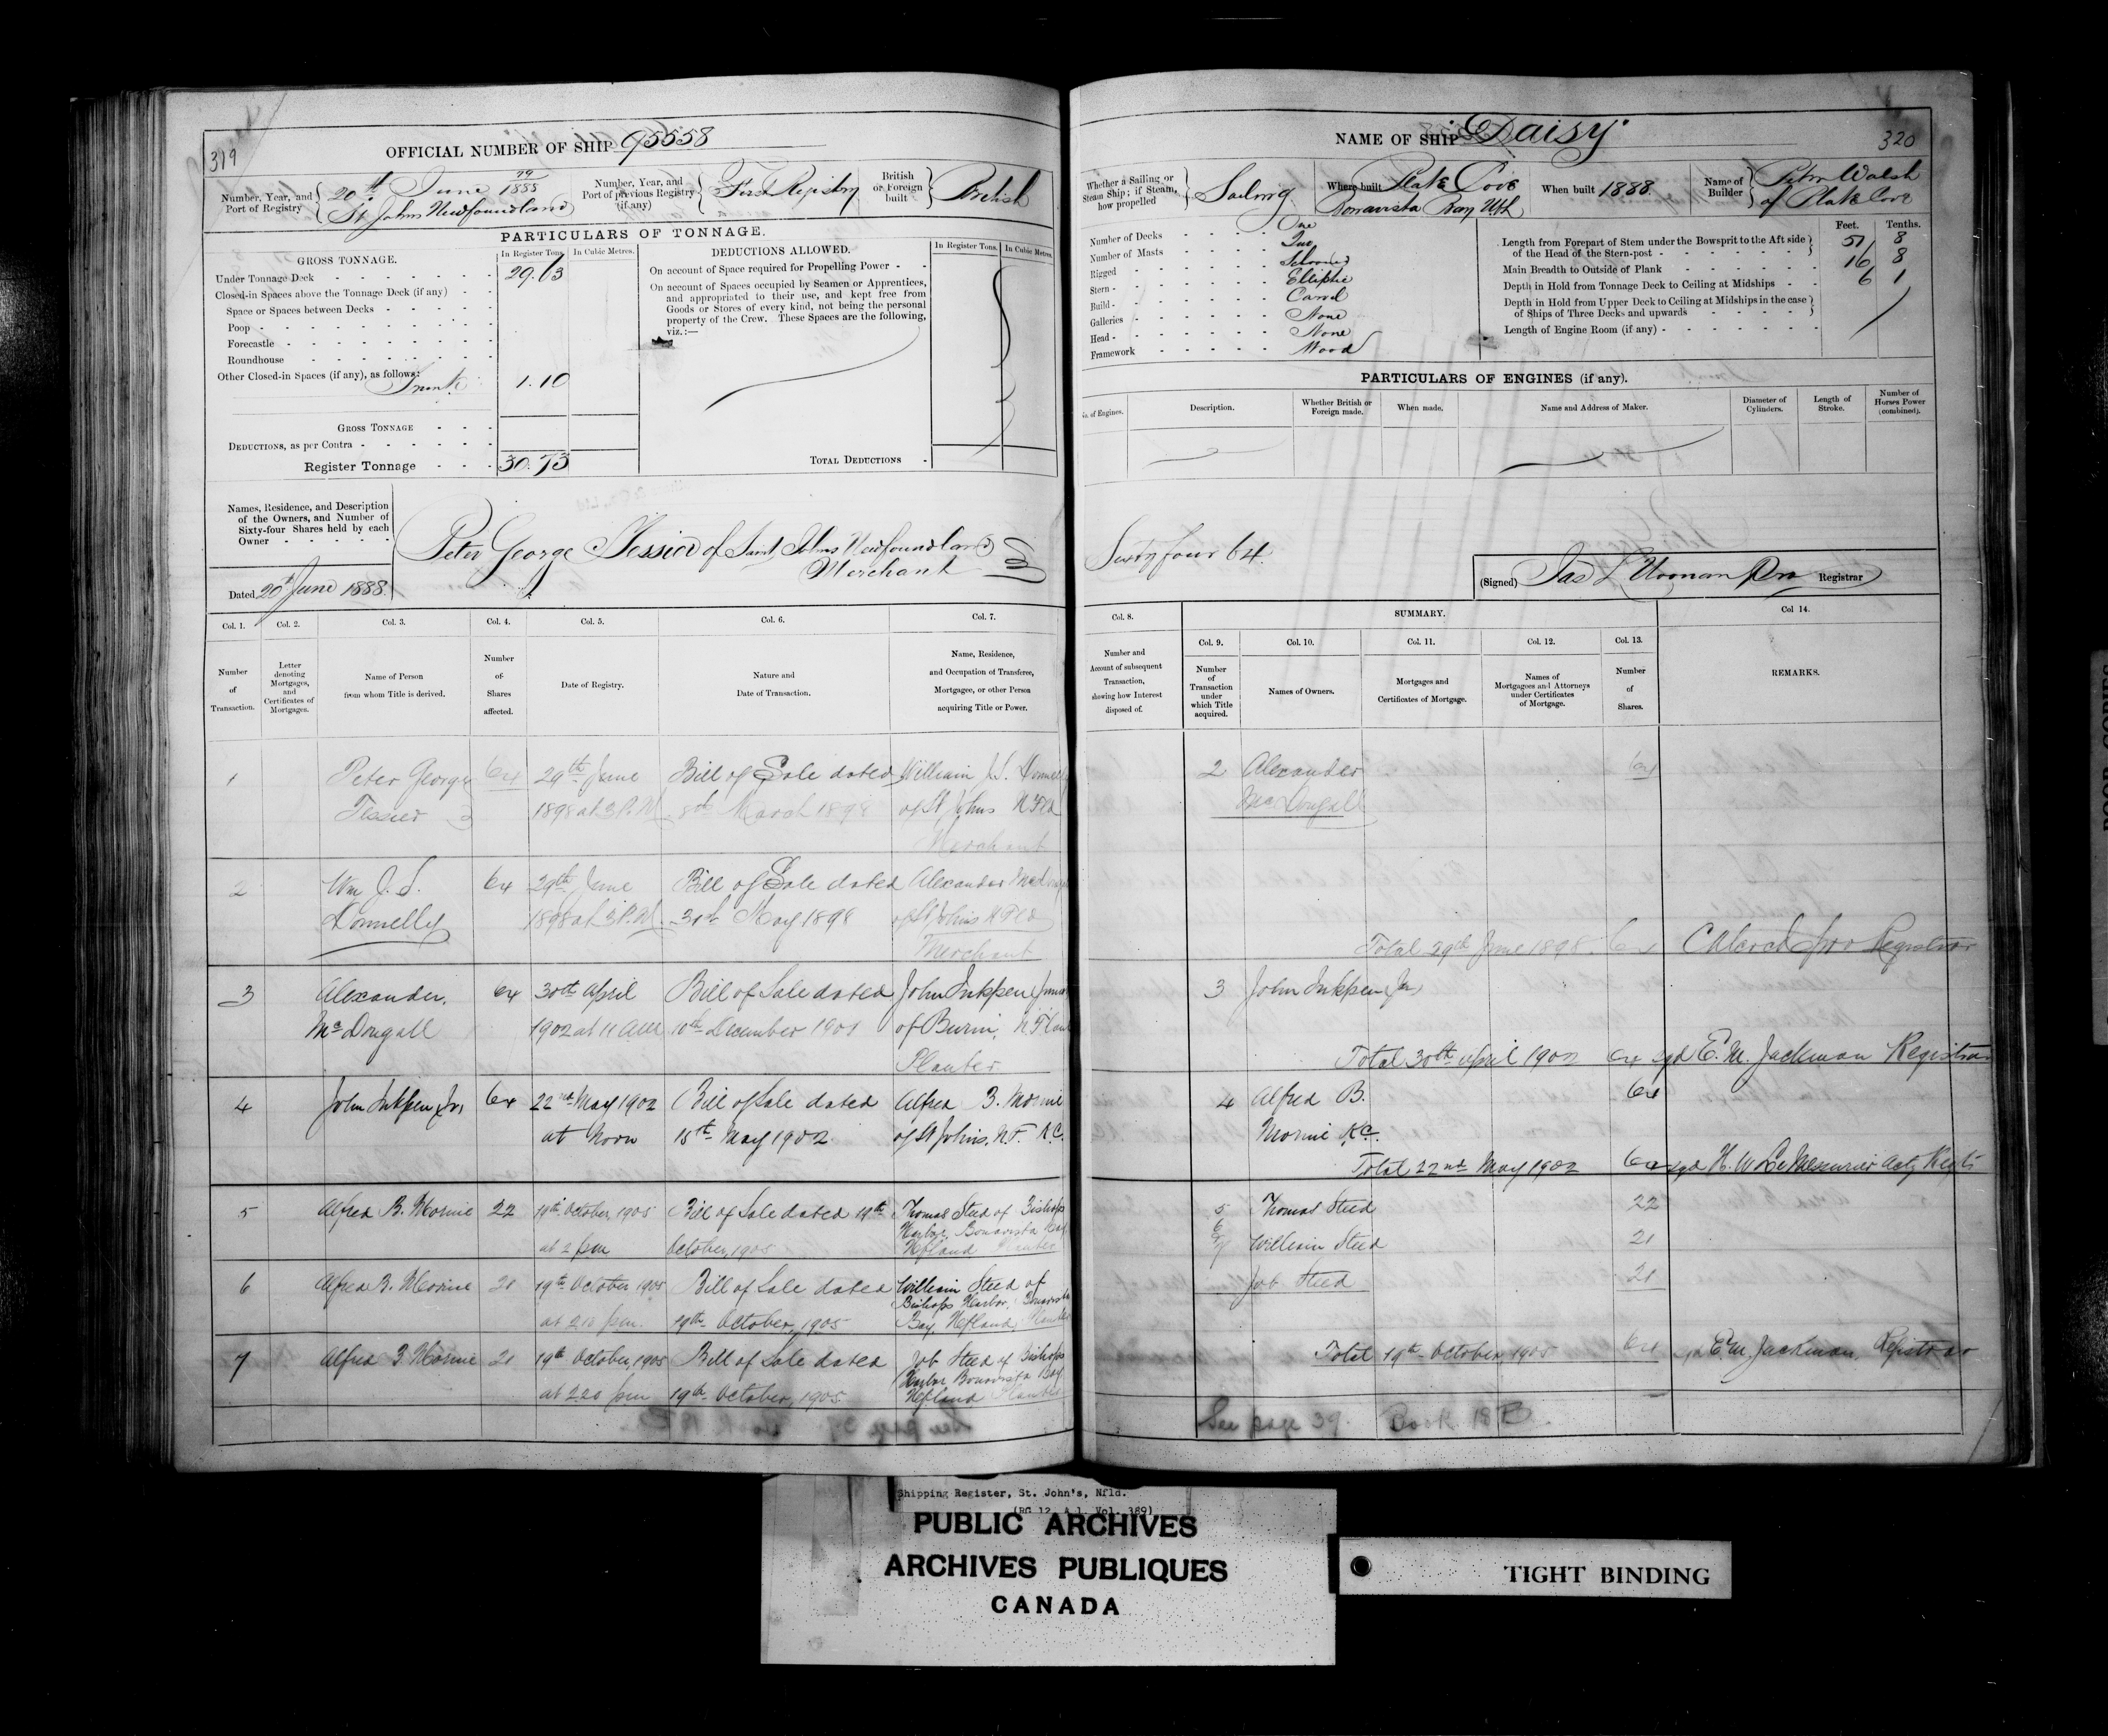 319
OFFICIAL NUMBER OF SHIP 95558
Number, Year, and Port of Registry
20th June 29/1888
St Johns Newfoundland
Number, Year, and Port of previous Registry (if any)
First Registry
British or Foreign built
British
PARTICULARS OF TONNAGE.
GROSS TONNAGE.
In Register Tons.
In Cubic Metres.
Under Tonnage Deck 29.63
Closed-in Spaces above the Tonnage Deck (if any)
Space or Spaces between Decks
Poop
Forecastle
Roundhouse
Other Closed-in Spaces (if any), as follows:
Trunk 1.10
GROSS TONNAGE
DEDUCTIONS, as per Contra
Register Tonnage 30.73
DEDUCTIONS ALLOWED.
In Register Tons.
In Cubic Metres.
On account of Space required for Propelling Power
On account of Spaces occupied by Seamen or Apprentices,
and appropriated to their use, and kept free from
Goods or Stores of every kind, not being the personal
property of the Crew. These Spaces are the following,
viz.:—
TOTAL DEDUCTIONS
Names, Residence, and Description
of the Owners, and Number of
Sixty-four Shares held by each
Owner
Dated 20th June 1888.
Peter George Tessier of Saint Johns Newfoundland
Merchant
Col. 1. Col. 2. Col. 3. Col. 4. Col. 5. Col. 6. Col. 7.
Number of Transaction.
Letter denoting Mortgages, and Certificates of Mortgages.
Name of Person from whom Title is derived.
Number of Shares affected.
Date of Registry.
Nature and Date of Transaction.
Name, Residence, and Occupation of Transferee, Mortgagee, or other Person acquiring Title or Power.
1 Peter George 64 29th June Bill of Sale dated William J. S. Donnelly
Tessier 1898 at 3 P.M. 8th March 1898 of St Johns N Fld
Merchant
2 Wm J. S. 64 29th June Bill of Sale dated Alexander
Donnelly 1898 at 3 P.M. 31st May 1898 of St Johns N Fld
Merchant
3 Alexander 64 30th April Bill of Sale dated John Inkpen
McDougall 1902 at 11 am 10th December 1901 of Burin,
Planter
4 John Inkpen Jr 64 22nd May 1902 Bill of Sale dated Alfred B. Morine
at Noon 15th May 1902 of St Johns. N.F. K.C.
5 Alfred B. Morine 22 19th October, 1905 Bill of Sale dated 19th Thomas Steed of Bishops
Harbor, Bonavista Bay
at 2 pm October, 1905 Nfland Planter
6 Alfred B. Morine 21 19th October 1905 Bill of Sale dated William Steed of
Bishops Harbor, Bonavista
at 2.10 pm. 19th October, 1905 Bay, Nfland, Planter
7 Alfred B. Morine 21 19th October, 1905 Bill of Sale dated Job Steed of Bishops
Harbor Bonavista Bay
at 2.20 pm 19th October, 1905. Nfland Planter
NAME OF SHIP "Daisy"
320
Whether a Sailing or Steam Ship; if Steam, how propelled
Sailing
Where built Plate Cove
Bonavista Bay Nfld
When built 1888.
Name of Builder
John Walsh
of Plate Cove
Number of Decks One
Number of Masts Two
Rigged Schooner
Stern Elliptic
Build Carvel
Galleries None
Head None
Framework Wood
Feet. Tenths.
Length from Forepart of Stem under the Bowsprit to the Aft side
of the Head of the Stern-post 51 8
Main Breadth to Outside of Plank 16 8
Depth in Hold from Tonnage Deck to Ceiling at Midships 6 1
Depth in Hold from Upper Deck to Ceiling at Midships in the case
of Ships of Three Decks and upwards
Length of Engine Room (if any)
PARTICULARS OF ENGINES (if any).
No. of Engines.
Description.
Whether British or Foreign made.
When made.
Name and Address of Maker.
Diameter of Cylinders.
Length of Stroke.
Number of Horses Power (combined).
Sixty four 64.
(Signed) Jas L Noonan Registrar
Col. 8.
SUMMARY.
Col 14.
Col. 9. Col. 10. Col. 11. Col. 12. Col. 13.
Number and Account of subsequent Transaction, showing how Interest disposed of.
Number of Transaction under which Title acquired.
Names of Owners.
Mortgages and Certificates of Mortgage.
Names of Mortgagees and Attorneys under Certificates of Mortgage.
Number of Shares.
REMARKS.
2 Alexander 64
McDougall
Total 29th June 1898. 64 Registrar
3 John Inkpen Jr
Total 30th April 1902 64 sgd E. M. Jackman Registrar
4 Alfred B. 64
Morine K.C.
Total 22nd May 1902 64 sgd H. W LeMessurier Actg Regtr
5 Thomas Steed 22
6
7 William Steed 21
Job Steed 21
Total 19th October, 1905 64 sgd E. M. Jackman, Registrar
See page 39. Book 18 B
Shipping Register, St. John's, Nfld.
(RG 12, A 1, Vol. 389)
PUBLIC ARCHIVES
ARCHIVES PUBLIQUES
CANADA
TIGHT BINDING